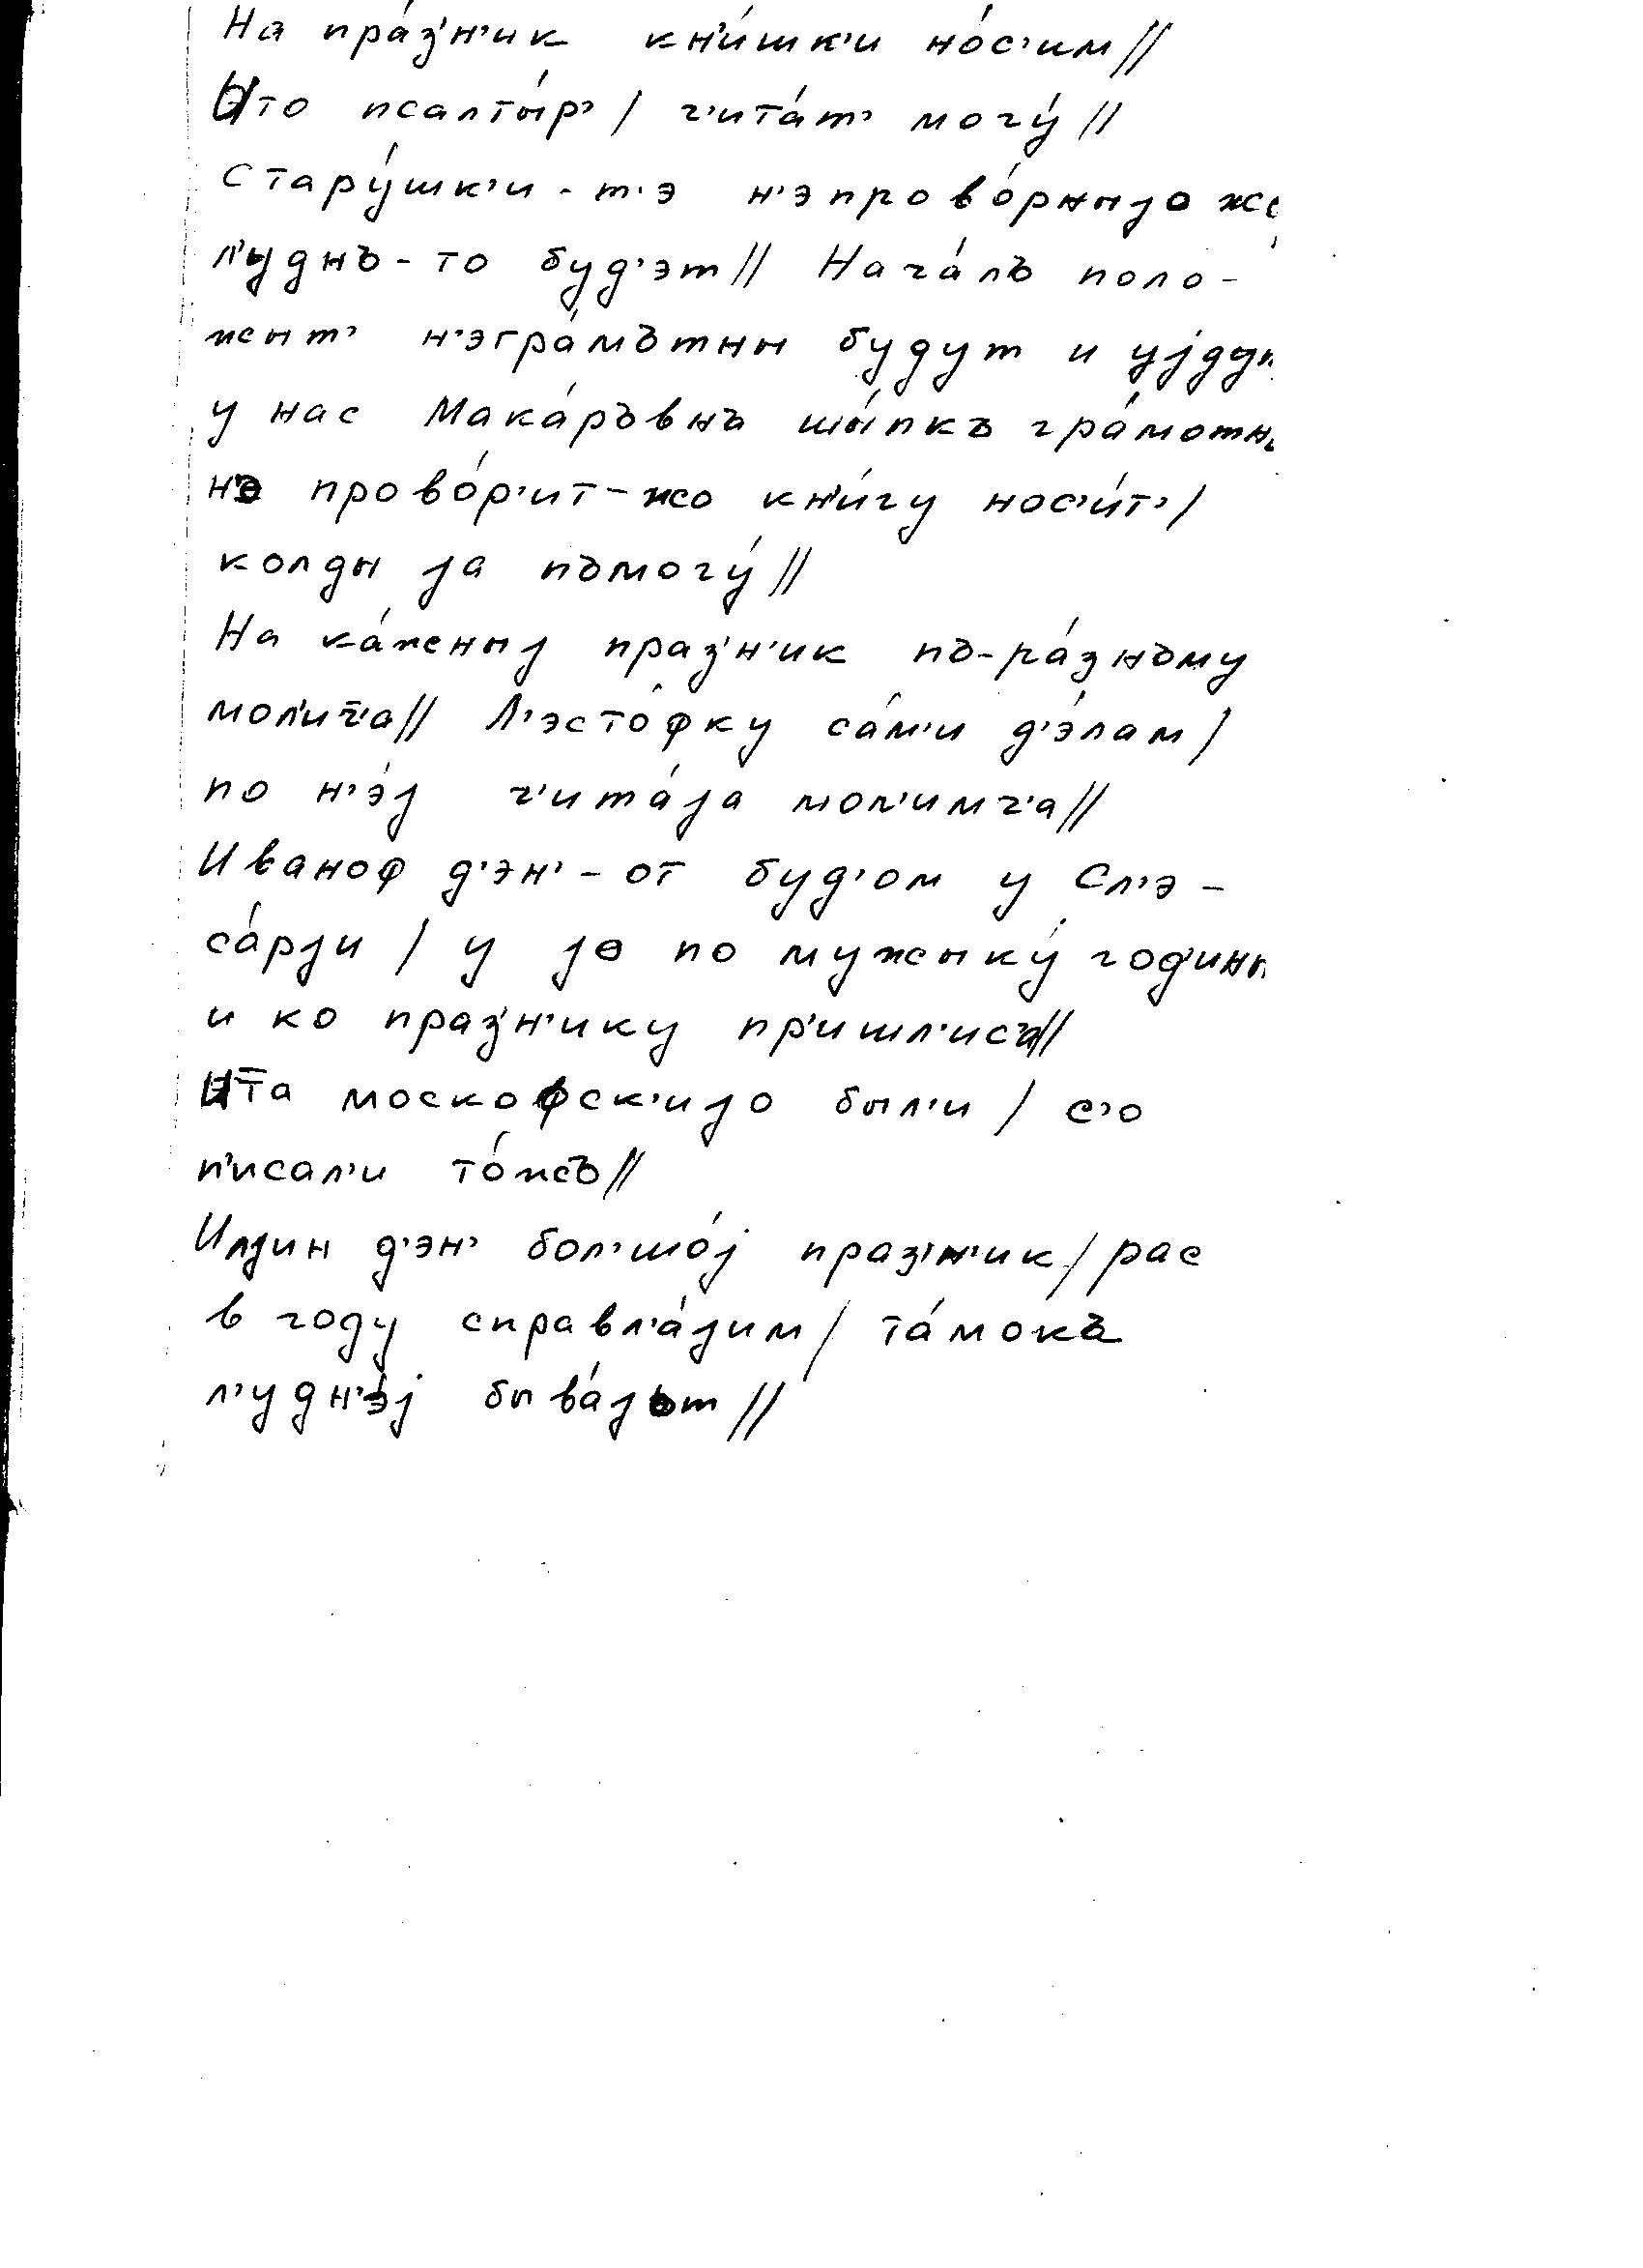 На пра́з'н'ик кн'и́шк'и но́с'им//
Ыто псалты́р' / ч'ита́т' могу́ //
Стару́шк'и-т'э н'эпрово́рныjо жо
л'у́днъ-то буд'эт// Нача́лъ поло-
жыт' н'эгра́мътны будут и уjдут
у нас Мака́ръвнъ шы́пкъ гра́мотнъ
н'э прово́р'ит-жо кн'и́гу нос'и́т'/
колды jа пъмогу́ //
На ка́жныj праз'н'ик пъ-ра́знъму
мол'ич'а// Л'эсто́фку са́м'и д'э́лам/
по н'э́j ч'ита́jа мол'имч'а//
Иваноф д'эн'-от буд'ом у Сл'э-
са́рjи / у jо по мужыку́ год'ины
и ко праз'н'ику пр'ишл'ис'а//
Ыта москофск'иjо был'и / с'о
п'исал'и то́жъ//
Илjин д'эн' бол'шо́j праз'н'ик/ рас
в году справл'а́jим/ та́мокъ
л'удн'э́j быва́jьт //